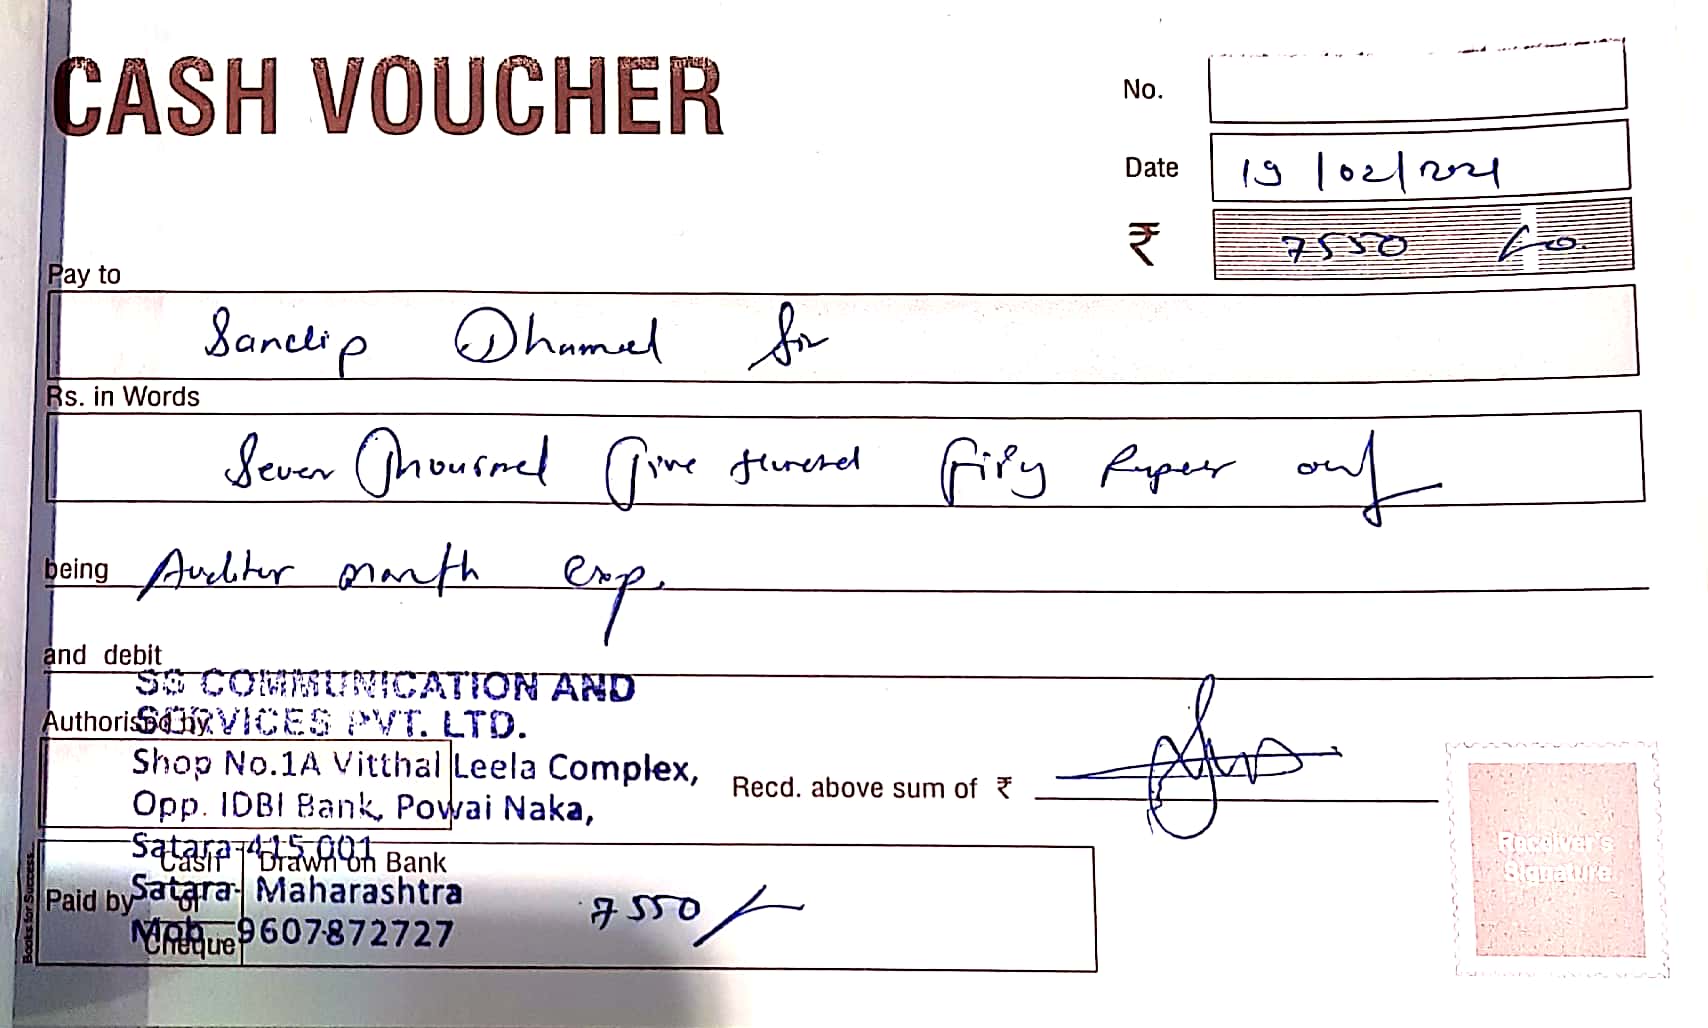 CASH VOUCHER
No.
Date 19/02/2021
₹ 7550 /-
Pay to
Sandip Dhumal Sir
Rs. in Words
Seven Thousand Five Hundred Fifty Rupees only
being Auditor month exp.
and debit
SS COMMUNICATION AND
SERVICES PVT. LTD.
Authorised by
Shop No.1A Vitthal Leela Complex,
Opp. IDBI Bank, Powai Naka,
Satara-415 001
Satara- Maharashtra
Mob. 9607872727
Recd. above sum of ₹
Receiver's
Signature
Paid by Cash or Cheque
Drawn on Bank
7550/-
Books for Success